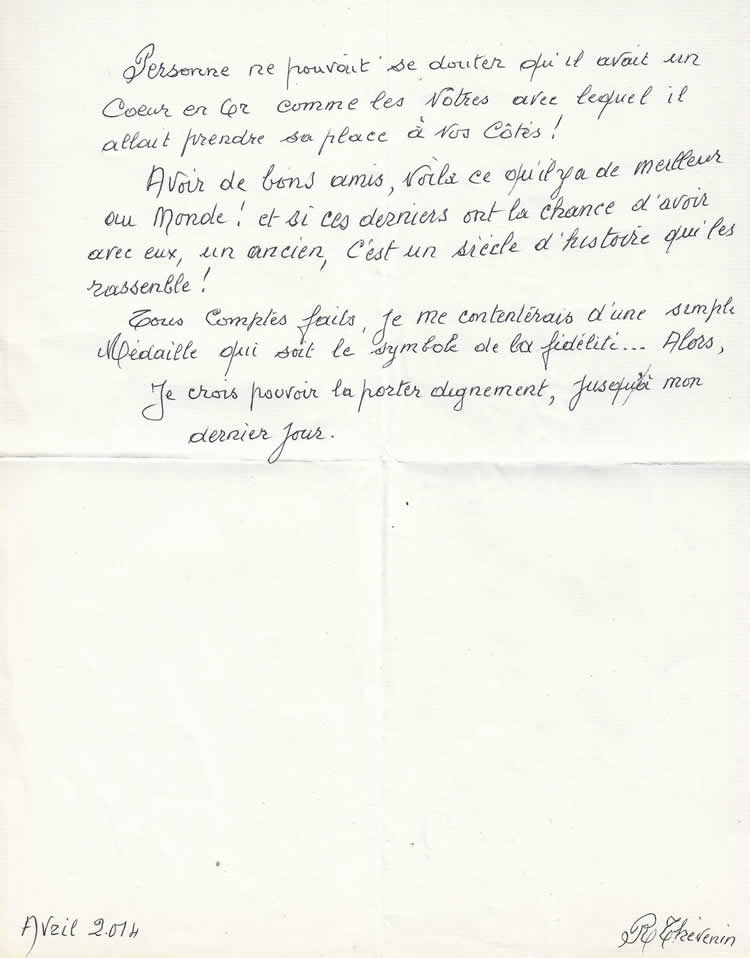 Personne ne pouvait se douter qu'il avait un
Coeur en Or comme les Vôtres avec lequel il
allait prendre sa place à Vos Côtés !
Avoir de bons amis, Voilà ce qu'il y a de meilleur
au Monde ! et si ces derniers ont la chance d'avoir
avec eux, un ancien, C'est un siècle d'histoire qui les
rassenble !
Tous Comptes faits, Je me contentérais d'une simple
Médaille qui soit le symbole de la fidélité... Alors,
Je crois pouvoir la porter dignement, Jusqu'à mon
dernier Jour.
Avril 2.014
R Thévenin